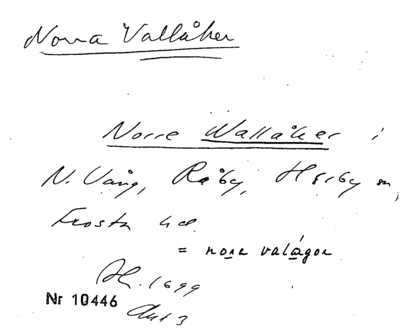 Norra Vallåker
Norre Wallåker i
N. Vång, Råby, Hörby sn,
Frosta hd.
= nora valågor
Ak. 1699
Akt 3
Nr 10446